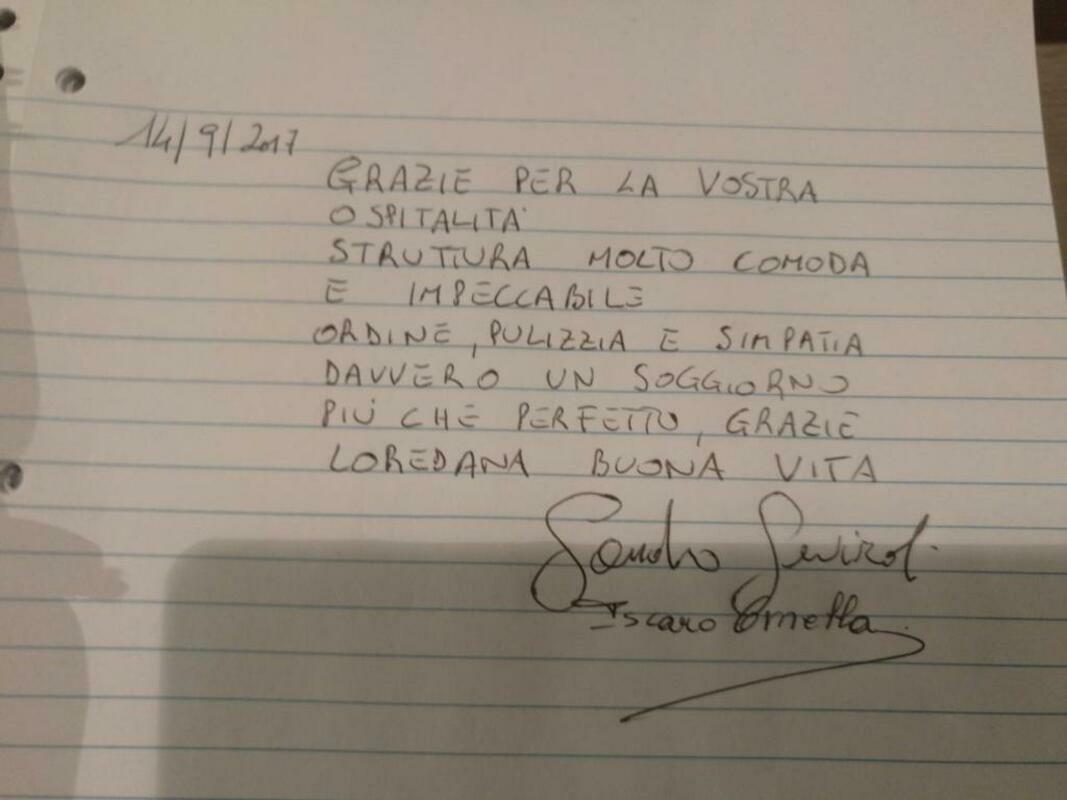 14/9/2017
GRAZIE PER LA VOSTRA
OSPITALITA'
STRUTTURA MOLTO COMODA
E IMPECCABILE
ORDINE, PULIZZIA E SIMPATIA
DAVVERO UN SOGGIORNO
PIÙ CHE PERFETTO, GRAZIE
LOREDANA BUONA VITA
Sandro
Iscaro Ornella